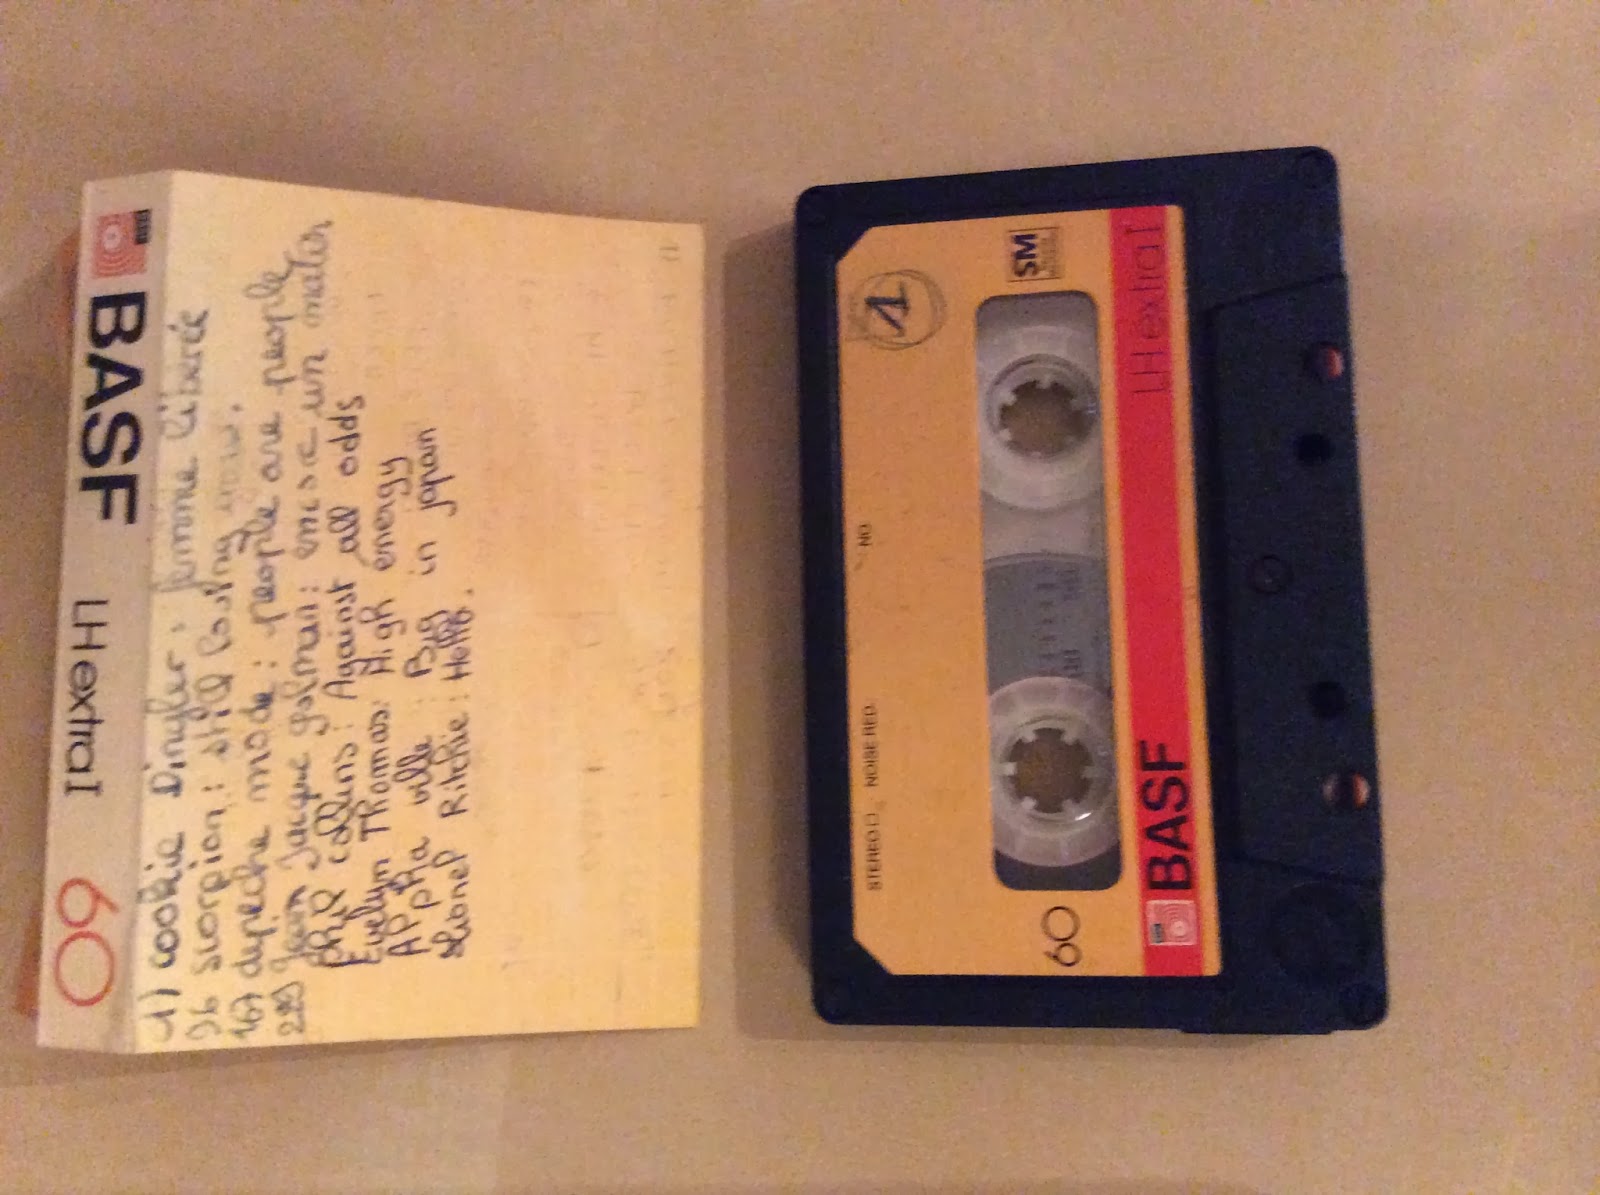 BASF LH extra I 60
1) cookie Dingler : femme libéré
96 scorpion : still loving you.
167 depeche mode : people are people
229 Jean Jacque golman : encore un matin
Phil collins : Against all odds
Evelyn Thomas : High energy
Alphaville : Big in japan
Lionel Ritchie : Hello.
1
SM
STEREO NOISE RED.
NO
60
100 50
BASF LH extra I